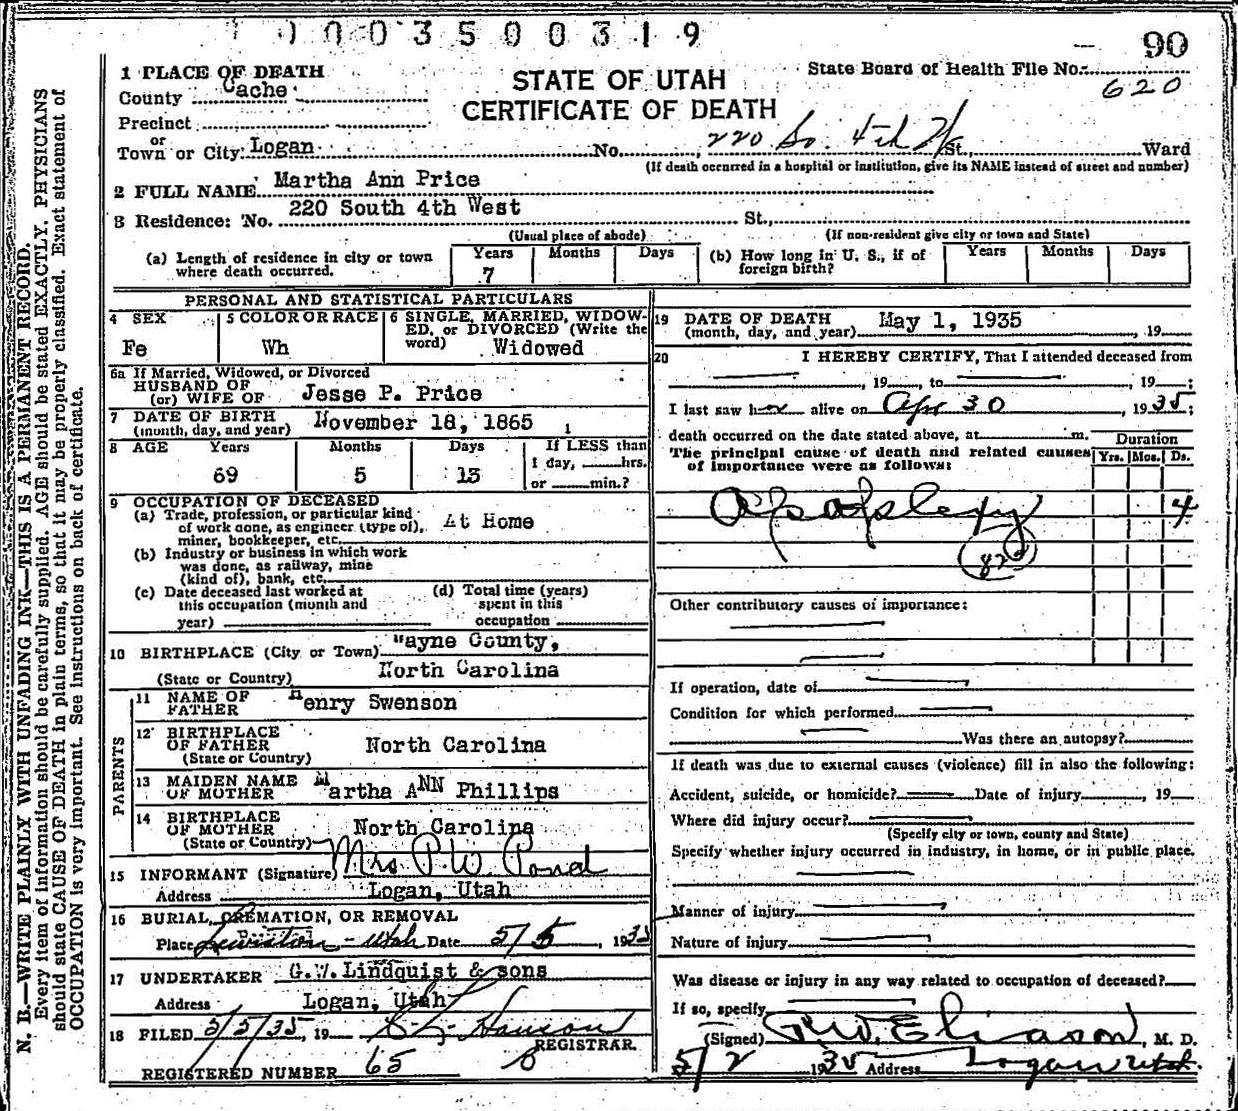 1 0 0 0 3 5 0 0 3 1 9
90
1 PLACE OF DEATH
County Cache
Precinct
or
Town or City: Logan
STATE OF UTAH
CERTIFICATE OF DEATH
State Board of Health File No.
620
No. 220 So. 4th St., Ward
(If death occurred in a hospital or institution, give its NAME instead of street and number)
2 FULL NAME Martha Ann Price
3 Residence: No. 220 South 4th West St.,
(Usual place of abode) (If non-resident give city or town and State)
(a) Length of residence in city or town where death occurred. Years 7 Months Days
(b) How long in U. S., if of foreign birth? Years Months Days
PERSONAL AND STATISTICAL PARTICULARS
4 SEX Fe
5 COLOR OR RACE Wh
6 SINGLE, MARRIED, WIDOWED, or DIVORCED (Write the word) Widowed
6a If Married, Widowed, or Divorced
HUSBAND OF
(or) WIFE OF Jesse P. Price
7 DATE OF BIRTH
(month, day, and year) November 18, 1865
8 AGE Years 69 Months 5 Days 13 If LESS than 1 day, hrs. or min.?
9 OCCUPATION OF DECEASED
(a) Trade, profession, or particular kind of work done, as engineer (type of), miner, bookkeeper, etc. At Home
(b) Industry or business in which work was done, as railway, mine (kind of), bank, etc.
(c) Date deceased last worked at this occupation (month and year)
(d) Total time (years) spent in this occupation
10 BIRTHPLACE (City or Town) Wayne County,
(State or Country) North Carolina
PARENTS
11 NAME OF FATHER Henry Swenson
12 BIRTHPLACE OF FATHER (State or Country) North Carolina
13 MAIDEN NAME OF MOTHER Martha ANN Phillips
14 BIRTHPLACE OF MOTHER (State or Country) North Carolina
15 INFORMANT (Signature) Mrs P.W. Pond
Address Logan, Utah
16 BURIAL, CREMATION, OR REMOVAL
Place Lewiston - Utah Date 5/5, 1935
17 UNDERTAKER G.W. Lindquist & sons
Address Logan, Utah
18 FILED 5/5/35, 19 Hanson
REGISTRAR.
REGISTERED NUMBER 65
19 DATE OF DEATH
(month, day, and year) May 1, 1935, 19
20 I HEREBY CERTIFY, That I attended deceased from
, 19, to , 19 ;
I last saw her alive on Apr 30, 1935;
death occurred on the date stated above, at m.
The principal cause of death and related causes of importance were as follows:
Duration
Yrs. Mos. Ds.
Apoplexy 4
82a
Other contributory causes of importance:
If operation, date of
Condition for which performed
Was there an autopsy?
If death was due to external causes (violence) fill in also the following:
Accident, suicide, or homicide? Date of injury, 19
Where did injury occur?
(Specify city or town, county and State)
Specify whether injury occurred in industry, in home, or in public place.
Manner of injury
Nature of injury
Was disease or injury in any way related to occupation of deceased?
If so, specify
(Signed) Eliason, M. D.
5/2 1935 Address Logan Utah.
N. B.—WRITE PLAINLY WITH UNFADING INK—THIS IS A PERMANENT RECORD.
Every item of information should be carefully supplied. AGE should be stated EXACTLY. PHYSICIANS
should state CAUSE OF DEATH in plain terms, so that it may be properly classified. Exact statement of
OCCUPATION is very important. See instructions on back of certificate.